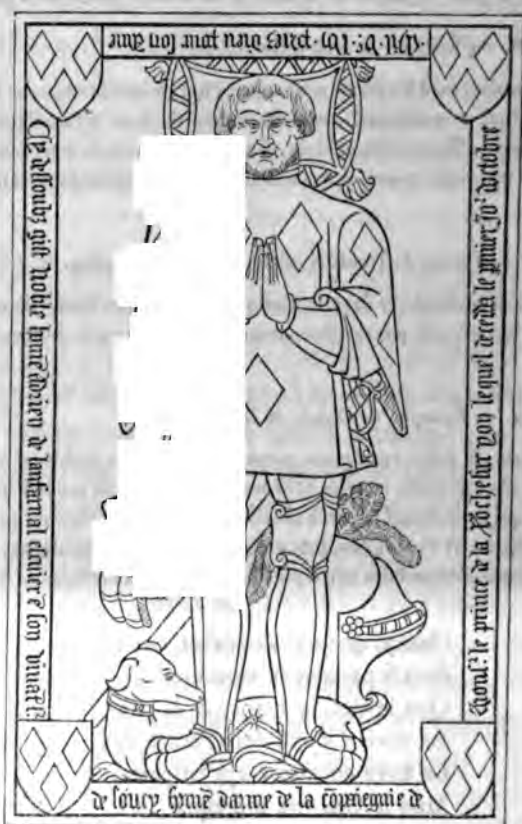 Cy dessoubz gist noble home adrien de lanfarnal escuier e son vivat
de soucy home darme de la copaiegnie de
monsr le prince de la Rochesur yon lequel deceda le pmier Jor doctobre
pries dieu pour son ame